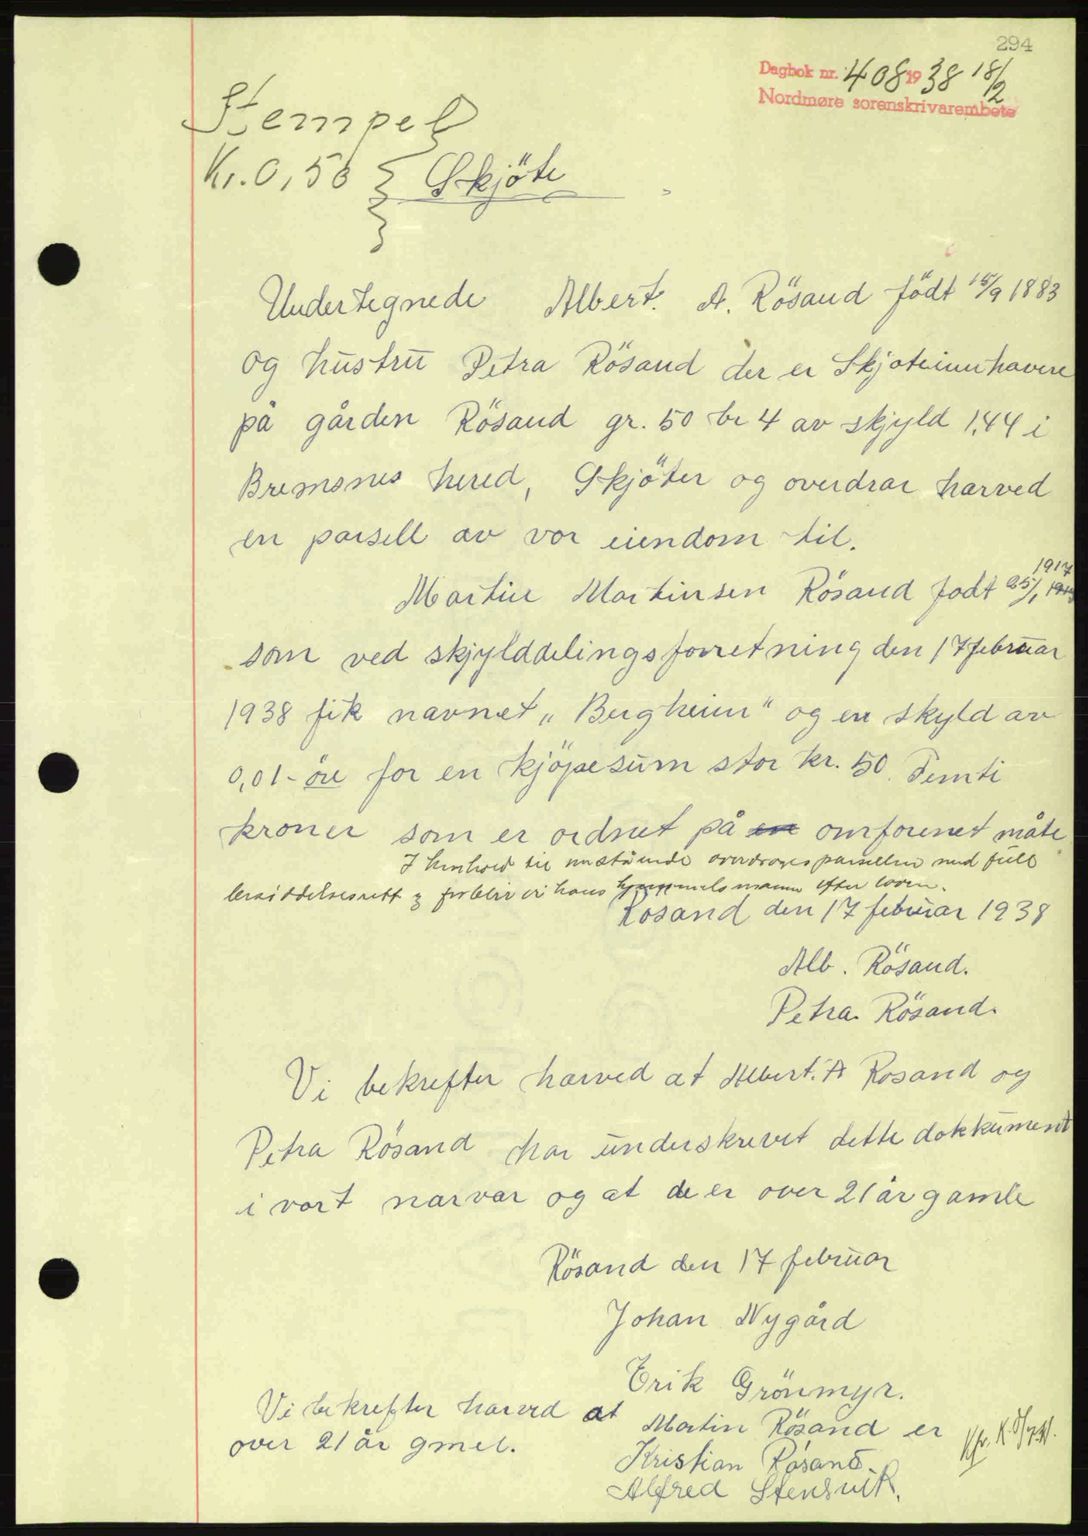 294
Dagbok nr. 408 1938 18/2
Nordmøre sorenskrivarembete
Stempel
Kr. 0,50
Skjöte
Undertegnede Albert. A. Rösand födt 15/9 1883
og hustru Petra Rösand der er Skjoteinnhavere
på gården Rösand gr. 50 br 4 av skjyld 1,44 i
Bremsnes hered, Skjöter og overdrar harved
en parsell av vor eiendom til.
Martin Martinsen Rösand fodt 25/1 1917
som ved skjylddelingsforretning den 17 februar
1938 fik navnet „Bergheim" og en skyld av
0,01 - öre for en kjöpesum stor kr. 50. Femti
kroner som er ordnet på en omforenet måte
I henhold til nærstående overdrages parsellen med full
besiddelsesrett og forblir vi hans hjemmelsmann efter loven.
Rosand den 17 februar 1938
Alb. Rösand.
Petra Rösand.
Vi bekrefter harved at Albert. A Rosand og
Petra Rösand har underskrevet dette dokkument
i vort narvar og at de er over 21 år gamle
Rösand den 17 februar
Johan Nygård
Erik Grönmyr.
Vi bekrefter harved at Martin Rösand er
over 21 år gmel.
Kristian Rösand.
Alfred Stensvik.